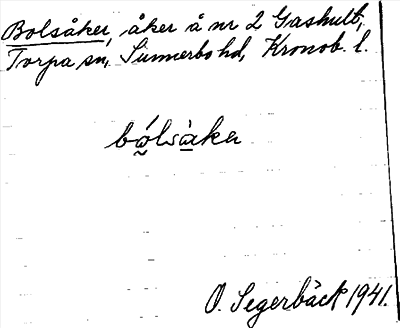 Bolsåker, åker å nr 2 Gashult,
Torpa sn, Sunnerbo hd, Kronob. l.
bålsàker
O. Segerbäck 1941.